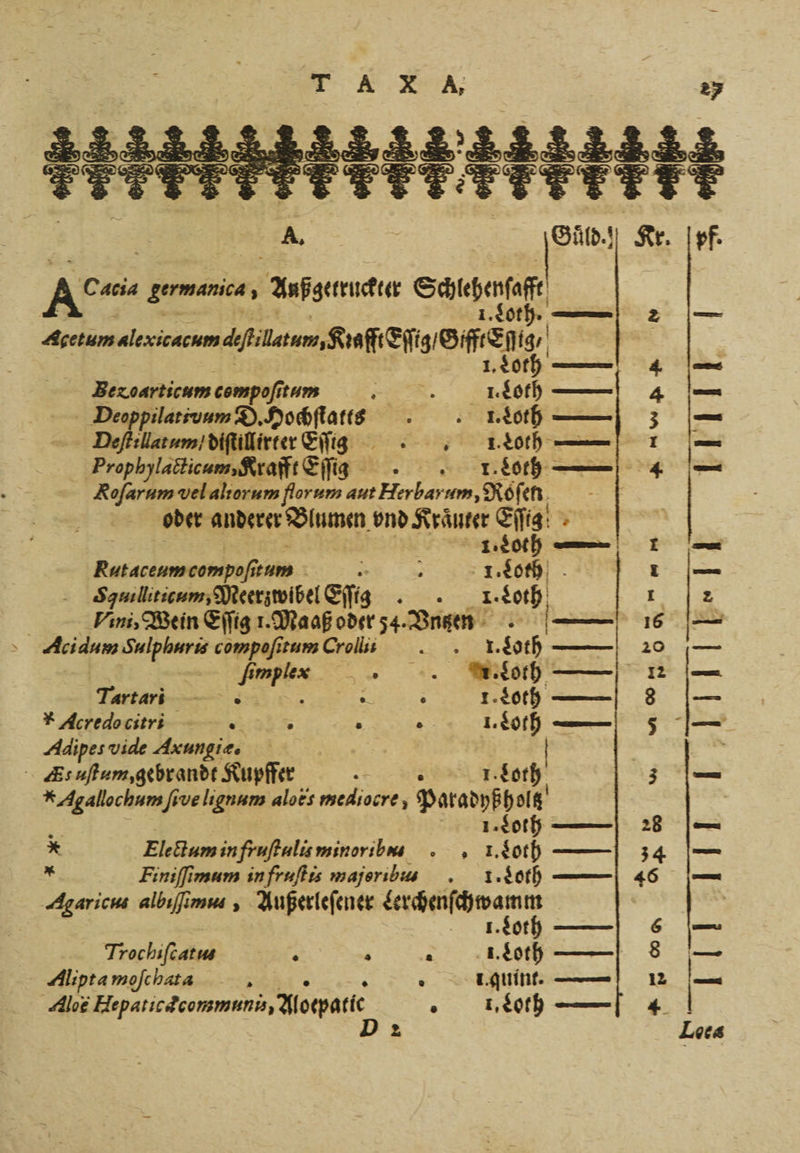 TAXA, 27
A. Gůld. Kr. pf.
ACacia germanica, Außgetruckter Schlehensafft
1. Loth. —— 2 —
Acetum alexicacum destillatum, KrafftEssig/GifftEssig/
1. Loth —— 4 —
Bezoarticum compositum . . 1. Loth —— 4 —
Deoppilativum D. Hochstatts . . 1. Loth —— 3 —
Destillatum/ distillirter Essig . . 1. Loth —— 1 —
Prophylacticum, Krafft Essig . . 1. Loth —— 4 —
Rosarum vel aliorum florum aut Herbarum, Rosen
oder anderer Blumen vnd Kräuter Essig
1. Loth —— 1 —
Rutaceum compositum . . 1. Loth 1 —
Squilliticum, Meerzwibel Essig . . 1. Loth 1 2
Vini, Wein Essig 1. Maaß oder 54. Vntzen . —— 16 —
Acidum Sulphuris compositum Crollii . . 1. Loth —— 20 —
simplex . . 1. Loth —— 12 —
Tartari . . . . 1. Loth —— 8 —
* Acredo citri . . . . 1. Loth —— 5 —
Adipes vide Axungiæ.
Æs ustum, gebrandt Kupffer . . 1. Loth 3 —
*Agallochum sive lignum aloës mediocre, Paradyßholtz
1. Loth —— 28 —
* Electum in frustulis minoribus . . 1. Loth —— 34 —
* Finissimum in frustis majoribus . 1. Loth —— 46 —
Agaricus albissimus, Außerlesener Lerchenschwamm
1. Loth —— 6 —
Trochiscatus . . . 1. Loth —— 8 —
Alipta moschata . . . . 1. quint. —— 12 —
Aloë Hepatica communis, Aloepatic . 1. Loth —— 4
D 2 Loca